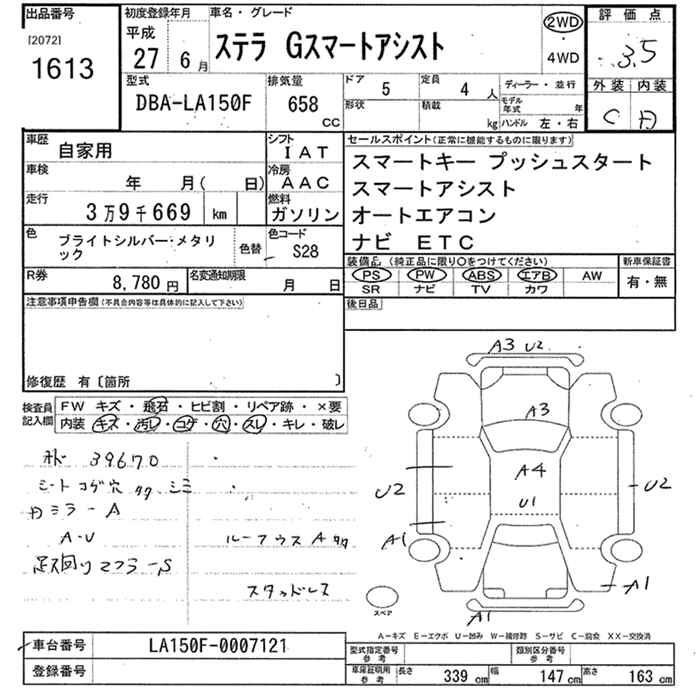 出品番号
[2072]
1613
初度登録年月
平成
27 6月
車名・グレード
ステラ Gスマートアシスト
2WD
・
4WD
評価点
3.5
外装 内装
C A
型式
DBA-LA150F
排気量
658
CC
ドア
5
定員
4 人
形状
積載
kg
ディーラー・並行
モデル年式 年
ハンドル 左・右
車歴
自家用
シフト
IAT
車検
年 月( 日)
冷房
AAC
走行
3万9千669 km
燃料
ガソリン
色
ブライトシルバー・メタリ
ック
色替
色コード
S28
R券
8,780 円
名変通知期限
月 日
セールスポイント(正常に機能するものに限ります)
スマートキー プッシュスタート
スマートアシスト
オートエアコン
ナビ ETC
装備品 (純正品に限り○をつけてください)
PS PW ABS エアB AW
SR ナビ TV カワ
新車保証書
有・無
後日品
注意事項申告欄(不具合内容等は具体的に記入して下さい)
修復歴 有〔箇所 〕
検査員
記入欄
FW キズ・飛石・ヒビ割・リペア跡・×要
内装 キズ・汚レ・コゲ・穴・スレ・キレ・破レ
オドー 39670
シートコゲ穴 タタ シミ
ミラーA
A・U
足スリ マフラーS
ルーフウスAタタ
スタッドレス
A3 U2
A3
A4
U2
U1
U2
A1
A1
A1
スペア
A-キズ E-エクボ U-凹み W-補修跡 S-サビ C-腐食 XX-交換済
車台番号
LA150F-0007121
登録番号
型式指定番号
参考
類別区分番号
参考
車庫証明用
参考
長さ 339 cm 幅 147 cm 高さ 163 cm